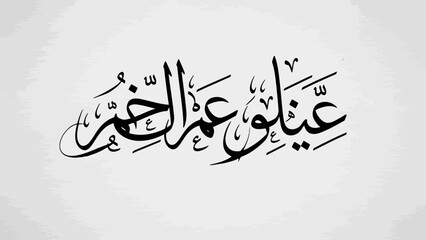 عِّيَنَلِوُ عَمَر الخِّمُرّ